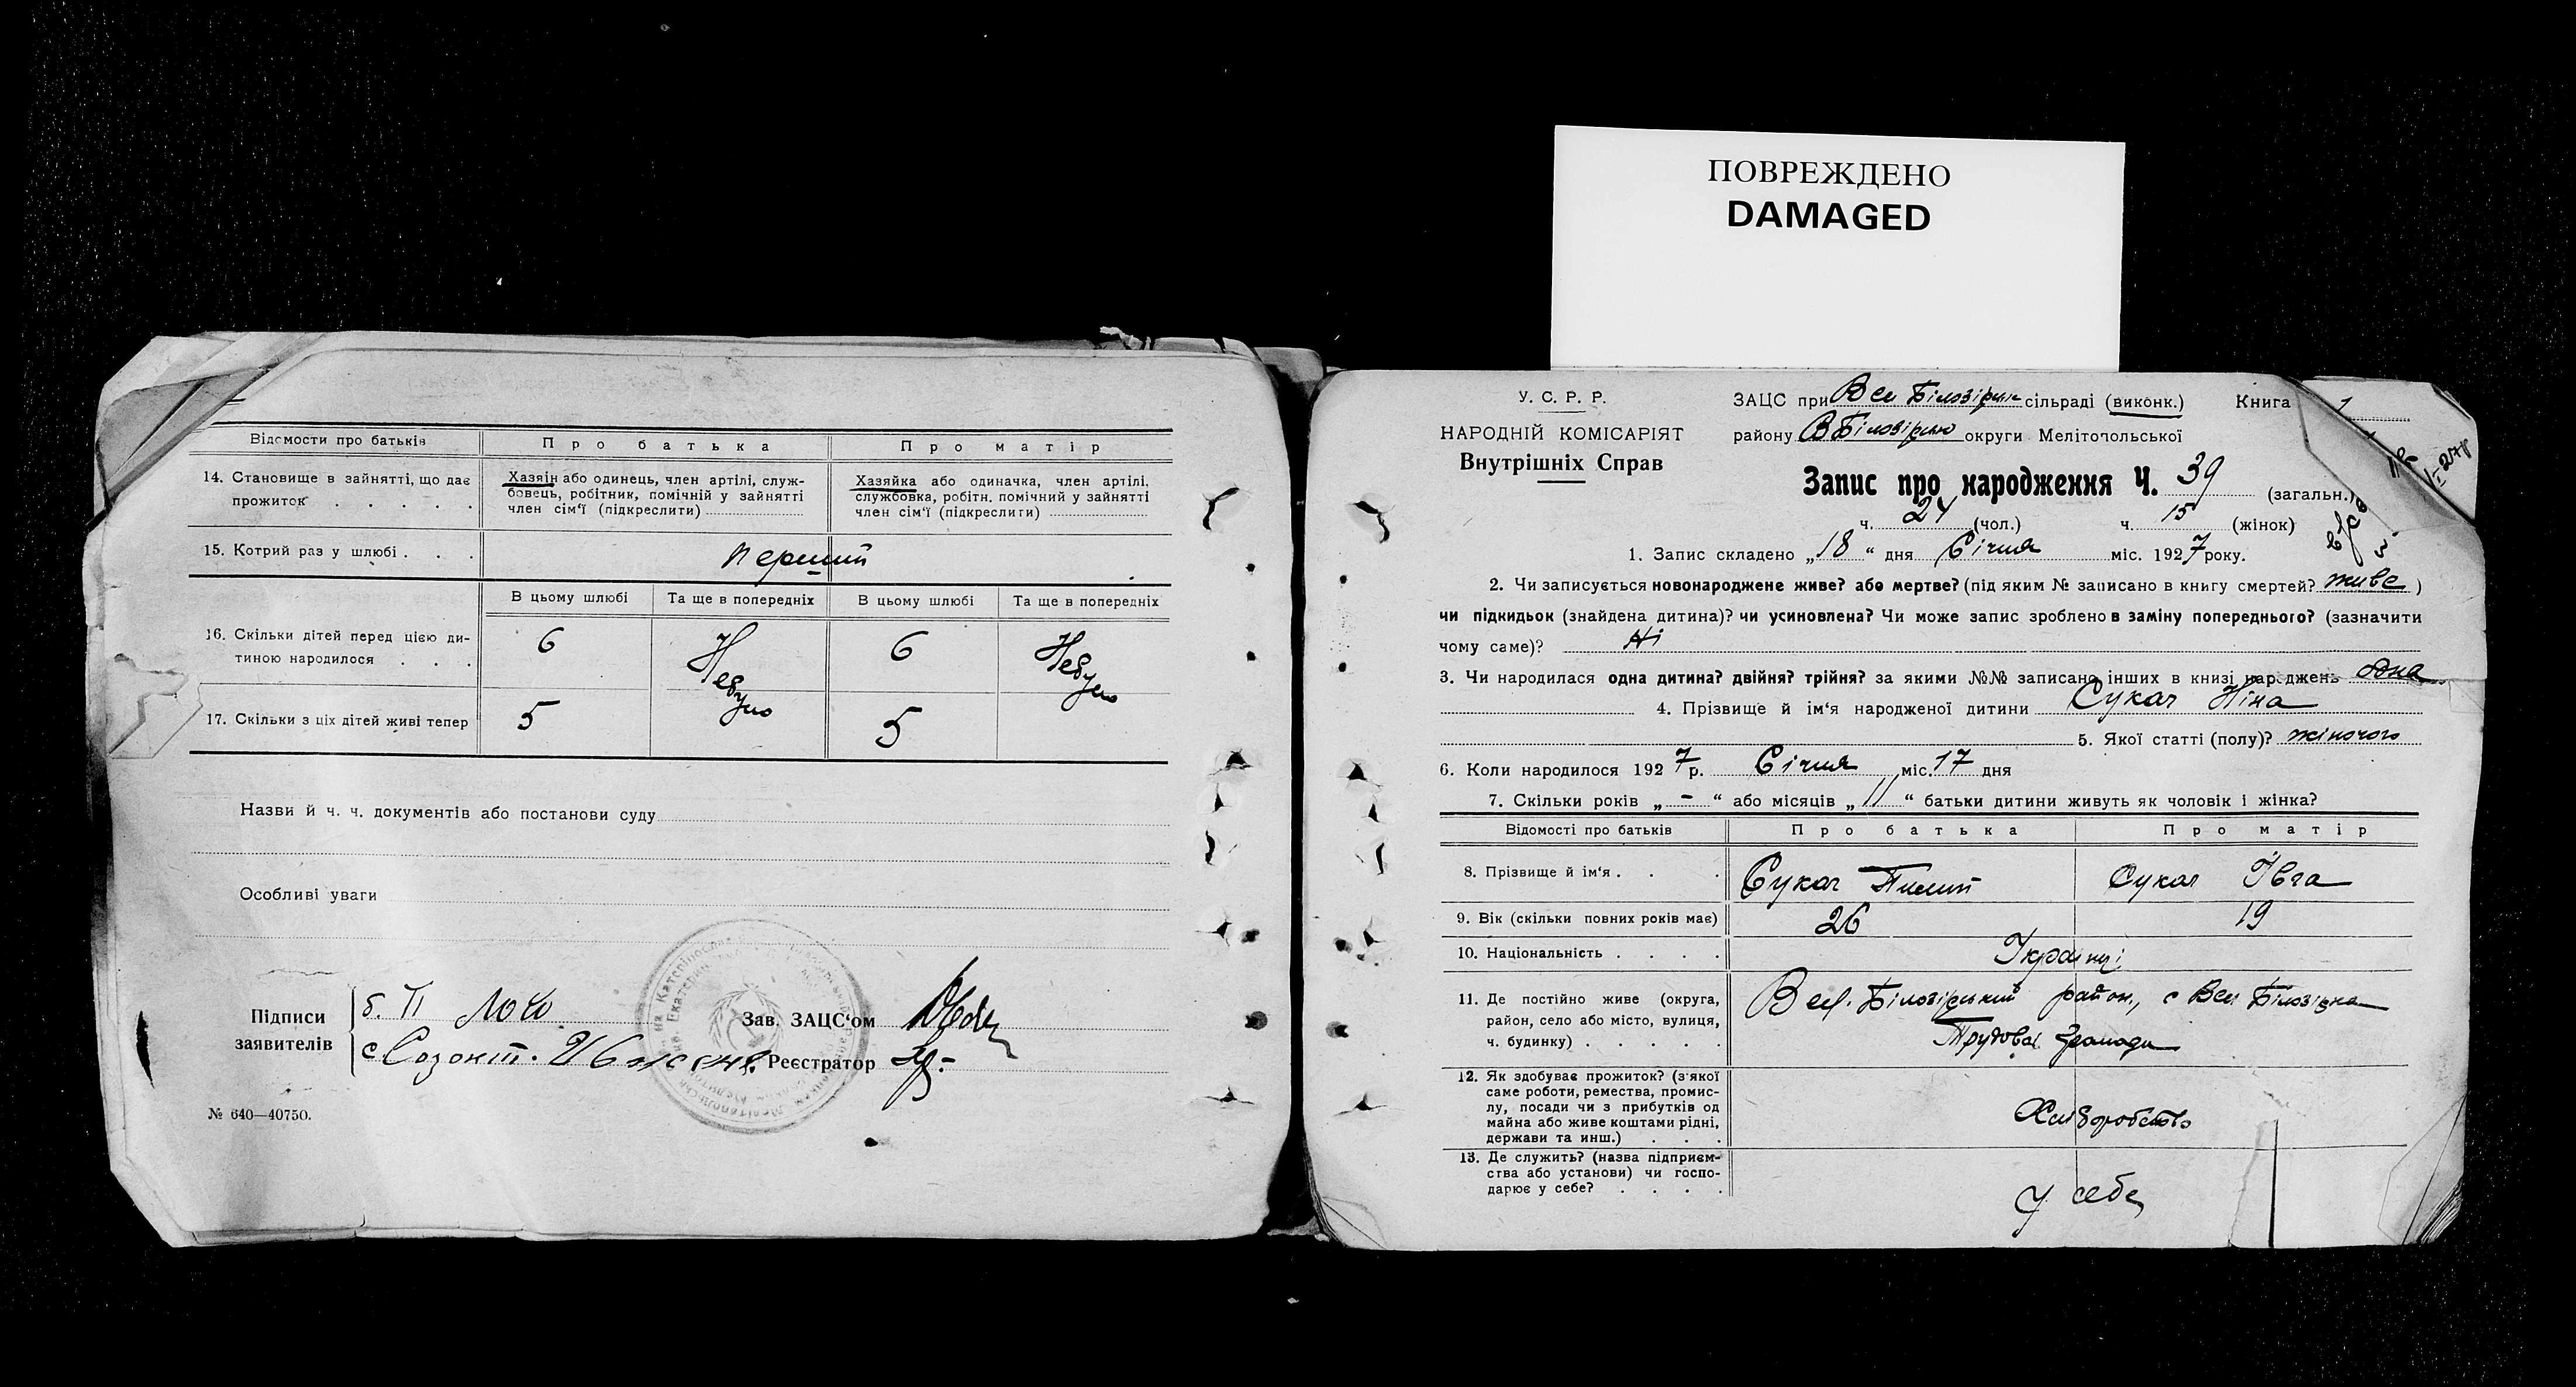 ПОВРЕЖДЕНО
DAMAGED
Відомости про батьків
Про батька
Про матір
14. Становище в зайнятті, що дає
прожиток . . . . .
Хазяін або одинець, член артілі, служ-
бовець, робітник, помічній у зайнятті
член сім'ї (підкреслити)
Хазяйка або одиначка, член артілі,
службовка, робітн. помічний у зайнятті
член сім'ї (підкреслити)
15. Котрий раз у шлюбі . . .
перший
В цьому шлюбі
Та ще в попередніх
В цьому шлюбі
Та ще в попередніх
16. Скільки дітей перед цією ди-
тиною народилося . . .
6
Небуло
6
Небуло
17. Скільки з ціх дітей живі тепер
5
5
Назви й ч. ч. документів або постанови суду
Особливі уваги
Підписи
заявителів
б. П
Зав. ЗАЦС'ом
с Созонт.
Реєстратор
№ 640—40750.
У. С. Р. Р.
НАРОДНІЙ КОМІСАРІЯТ
Внутрішніх Справ
ЗАЦС при Вел Білозірськ сільраді (виконк.) Книга 1
району ВБілозірськ округи Мелітопольської
Запис про народження Ч. 39 (загальн.)
ч. 24 (чол.) ч. 15 (жінок)
1. Запис складено „18“ дня Січня міс. 1927 року.
2. Чи записується новонароджене живе? або мертве? (під яким № записано в книгу смертей? живе )
чи підкидьок (знайдена дитина)? чи усиновлена? Чи може запис зроблено в заміну попереднього? (зазначити
чому саме)? Ні
3. Чи народилася одна дитина? двійня? трійня? за якими №№ записано інших в книзі народжень одна
4. Прізвище й ім'я народженої дитини Сукач Ніна
5. Якої статті (полу)? жіночого
6. Коли народилося 1927 р. Січня міс. 17 дня
7. Скільки років „-“ або місяців „11“ батьки дитини живуть як чоловік і жінка?
Відомості про батьків
Про батька
Про матір
8. Прізвище й ім'я . . .
Сукач Пилип
Сукач Івга
9. Вік (скільки повних років має)
26
19
10. Національність . . . .
Українці
11. Де постійно живе (округа,
район, село або місто, вулиця,
ч. будинку) . . . . .
Вел. Білозірський район, с Вел Білозірка
Трудова громада
12. Як здобуває прожиток? (з'якої
саме роботи, ремества, промис-
лу, посади чи з прибутків од
майна або живе коштами рідні,
держави та инш.) . . .
Хліборобство
13. Де служить? (назва підприєм-
ства або установи) чи госпо-
дарює у себе? . . . .
У себе